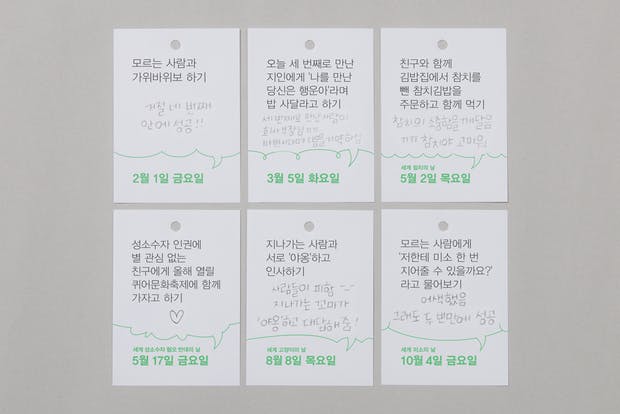 모르는 사람과
가위바위보 하기
거절 네 번째
만에 성공!!
2월 1일 금요일
오늘 세 번째로 만난
지인에게 '나를 만난
당신은 행운아'라며
밥 사달라고 하기
세 번째로 만난 사람이
3월 5일 화요일
친구와 함께
김밥집에서 참치를
뺀 참치김밥을
주문하고 함께 먹기
참치의 소중함을 깨달음
참치야 고마워
세계 참치의 날
5월 2일 목요일
성소수자 인권에
별 관심 없는
친구에게 올해 열릴
퀴어문화축제에 함께
가자고 하기
세계 성소수자 혐오 반대의 날
5월 17일 금요일
지나가는 사람과
서로 '야옹'하고
인사하기
사람들이 피함 -_-
지나가는 꼬마가
'야옹'하고 대답해줌'
세계 고양이의 날
8월 8일 목요일
모르는 사람에게
'저한테 미소 한 번
지어줄 수 있을까요?'
라고 물어보기
어색했음
그래도 두 번만에 성공
세계 미소의 날
10월 4일 금요일